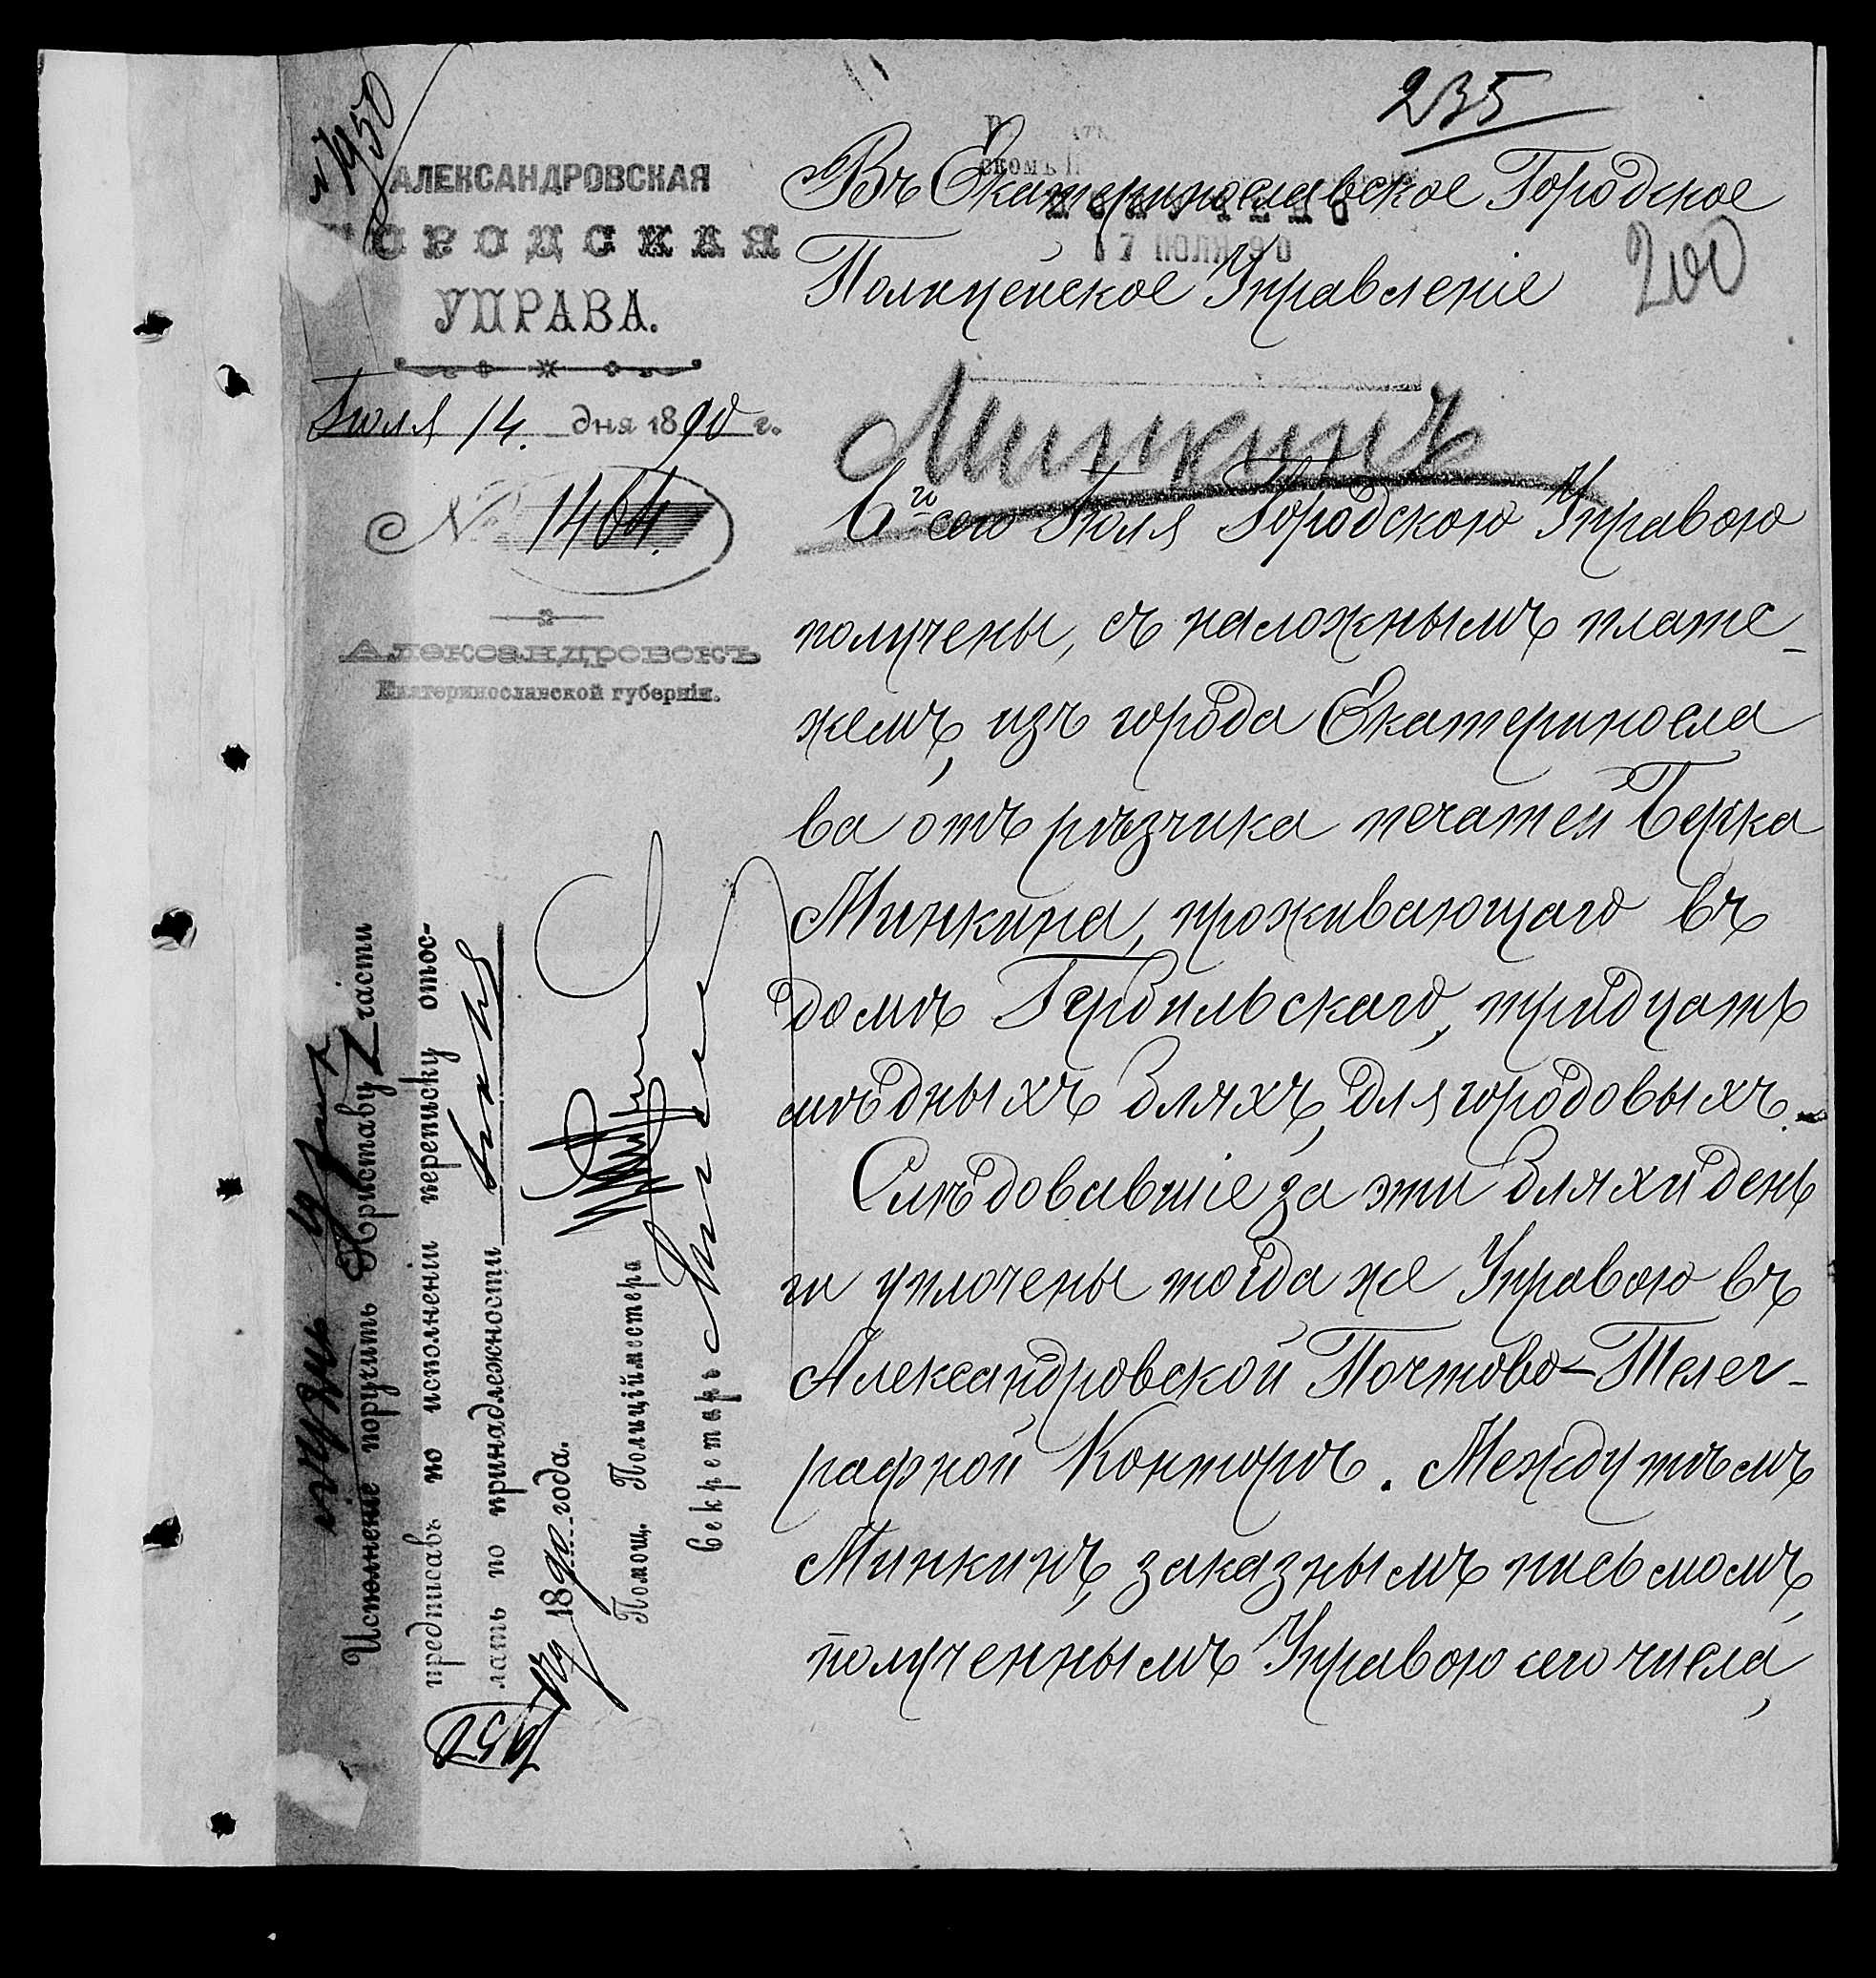 235
200
АЛЕКСАНДРОВСКАЯ
ГОРОДСКАЯ
УПРАВА.
Іюля 14 дня 1890 г.
№ 1464.
Александровскъ
Екатеринославской губерніи.
Въ Екатеринославское Городское
Полицейское Управленіе
17 ІЮЛЯ 90
Минкинъ
6го сего Іюля Городскою Управою
получены, съ наложнымъ плате-
жемъ, изъ города Екатериносла
ва отъ рѣзчика печатей Берка
Минкина, проживающаго въ
домѣ Гербильскаго, тридцать
мѣдныхъ бляхъ, для городовыхъ.
Слѣдовавшіе за эти бляхи день
ги уплочены тогда же Управою въ
Александровской Почтово-Телег-
рафной Конторѣ. Между тѣмъ
Минкинъ, заказнымъ письмомъ,
полученнымъ Управою сего числа,
Исполненіе поручить Приставу части
предписавъ по исполненіи переписку отос-
лать по принадлежности
1890 года.
Помощ. Полиційместера
Секретарь